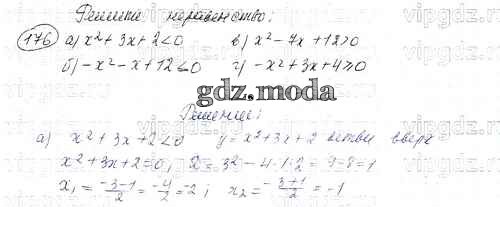 Решите неравенство:
176 а) x²+3x+2<0 в) x²-7x+12>0
б) -x²-x+12<0 г) -x²+3x+4≥0
gdz.moda
Решение:
а) x²+3x+2<0 y=x²+3x+2 ветви вверх
x²+3x+2=0, D=3²-4·1·2=9-8=1
x₁=(-3-1)/2=-4/2=-2; x₂=(-3+1)/2=-1